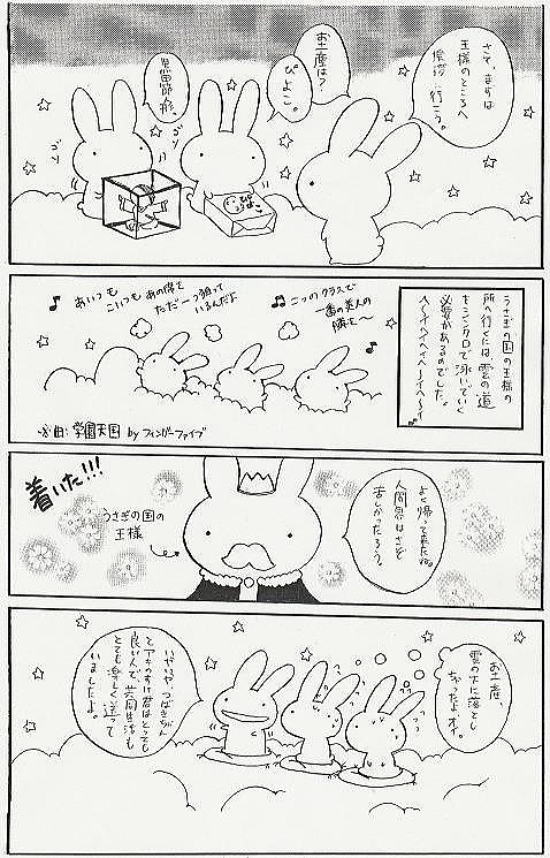 さて、まずは
王様のところへ
挨拶に行こう。
お土産は?
ぴよこ。
ゴソ
ゴソ
うさぎの国の王様の
所へ行くには、雲の道
をシンクロで泳いでいく
必要があるのでした。
ヘーイヘイヘイヘーイヘーイ
♫二つのクラスで
一番の美人の
隣を〜
♪あいつも
こいつもあの席を
ただ一つ狙って
いるんだよ
※曲:学園天国 by フィンガーファイブ
よく帰って来たね。
人間界はさぞ
苦しかったろう?
うさぎの国の
王様
着いた!!!
お土産、
雲の下に落とし
ちゃったよオイ。
いやいや、つばきちゃん
とアキのすけ君はとっても
良い人で、共同生活も
とても楽しく送って
いましたよ。